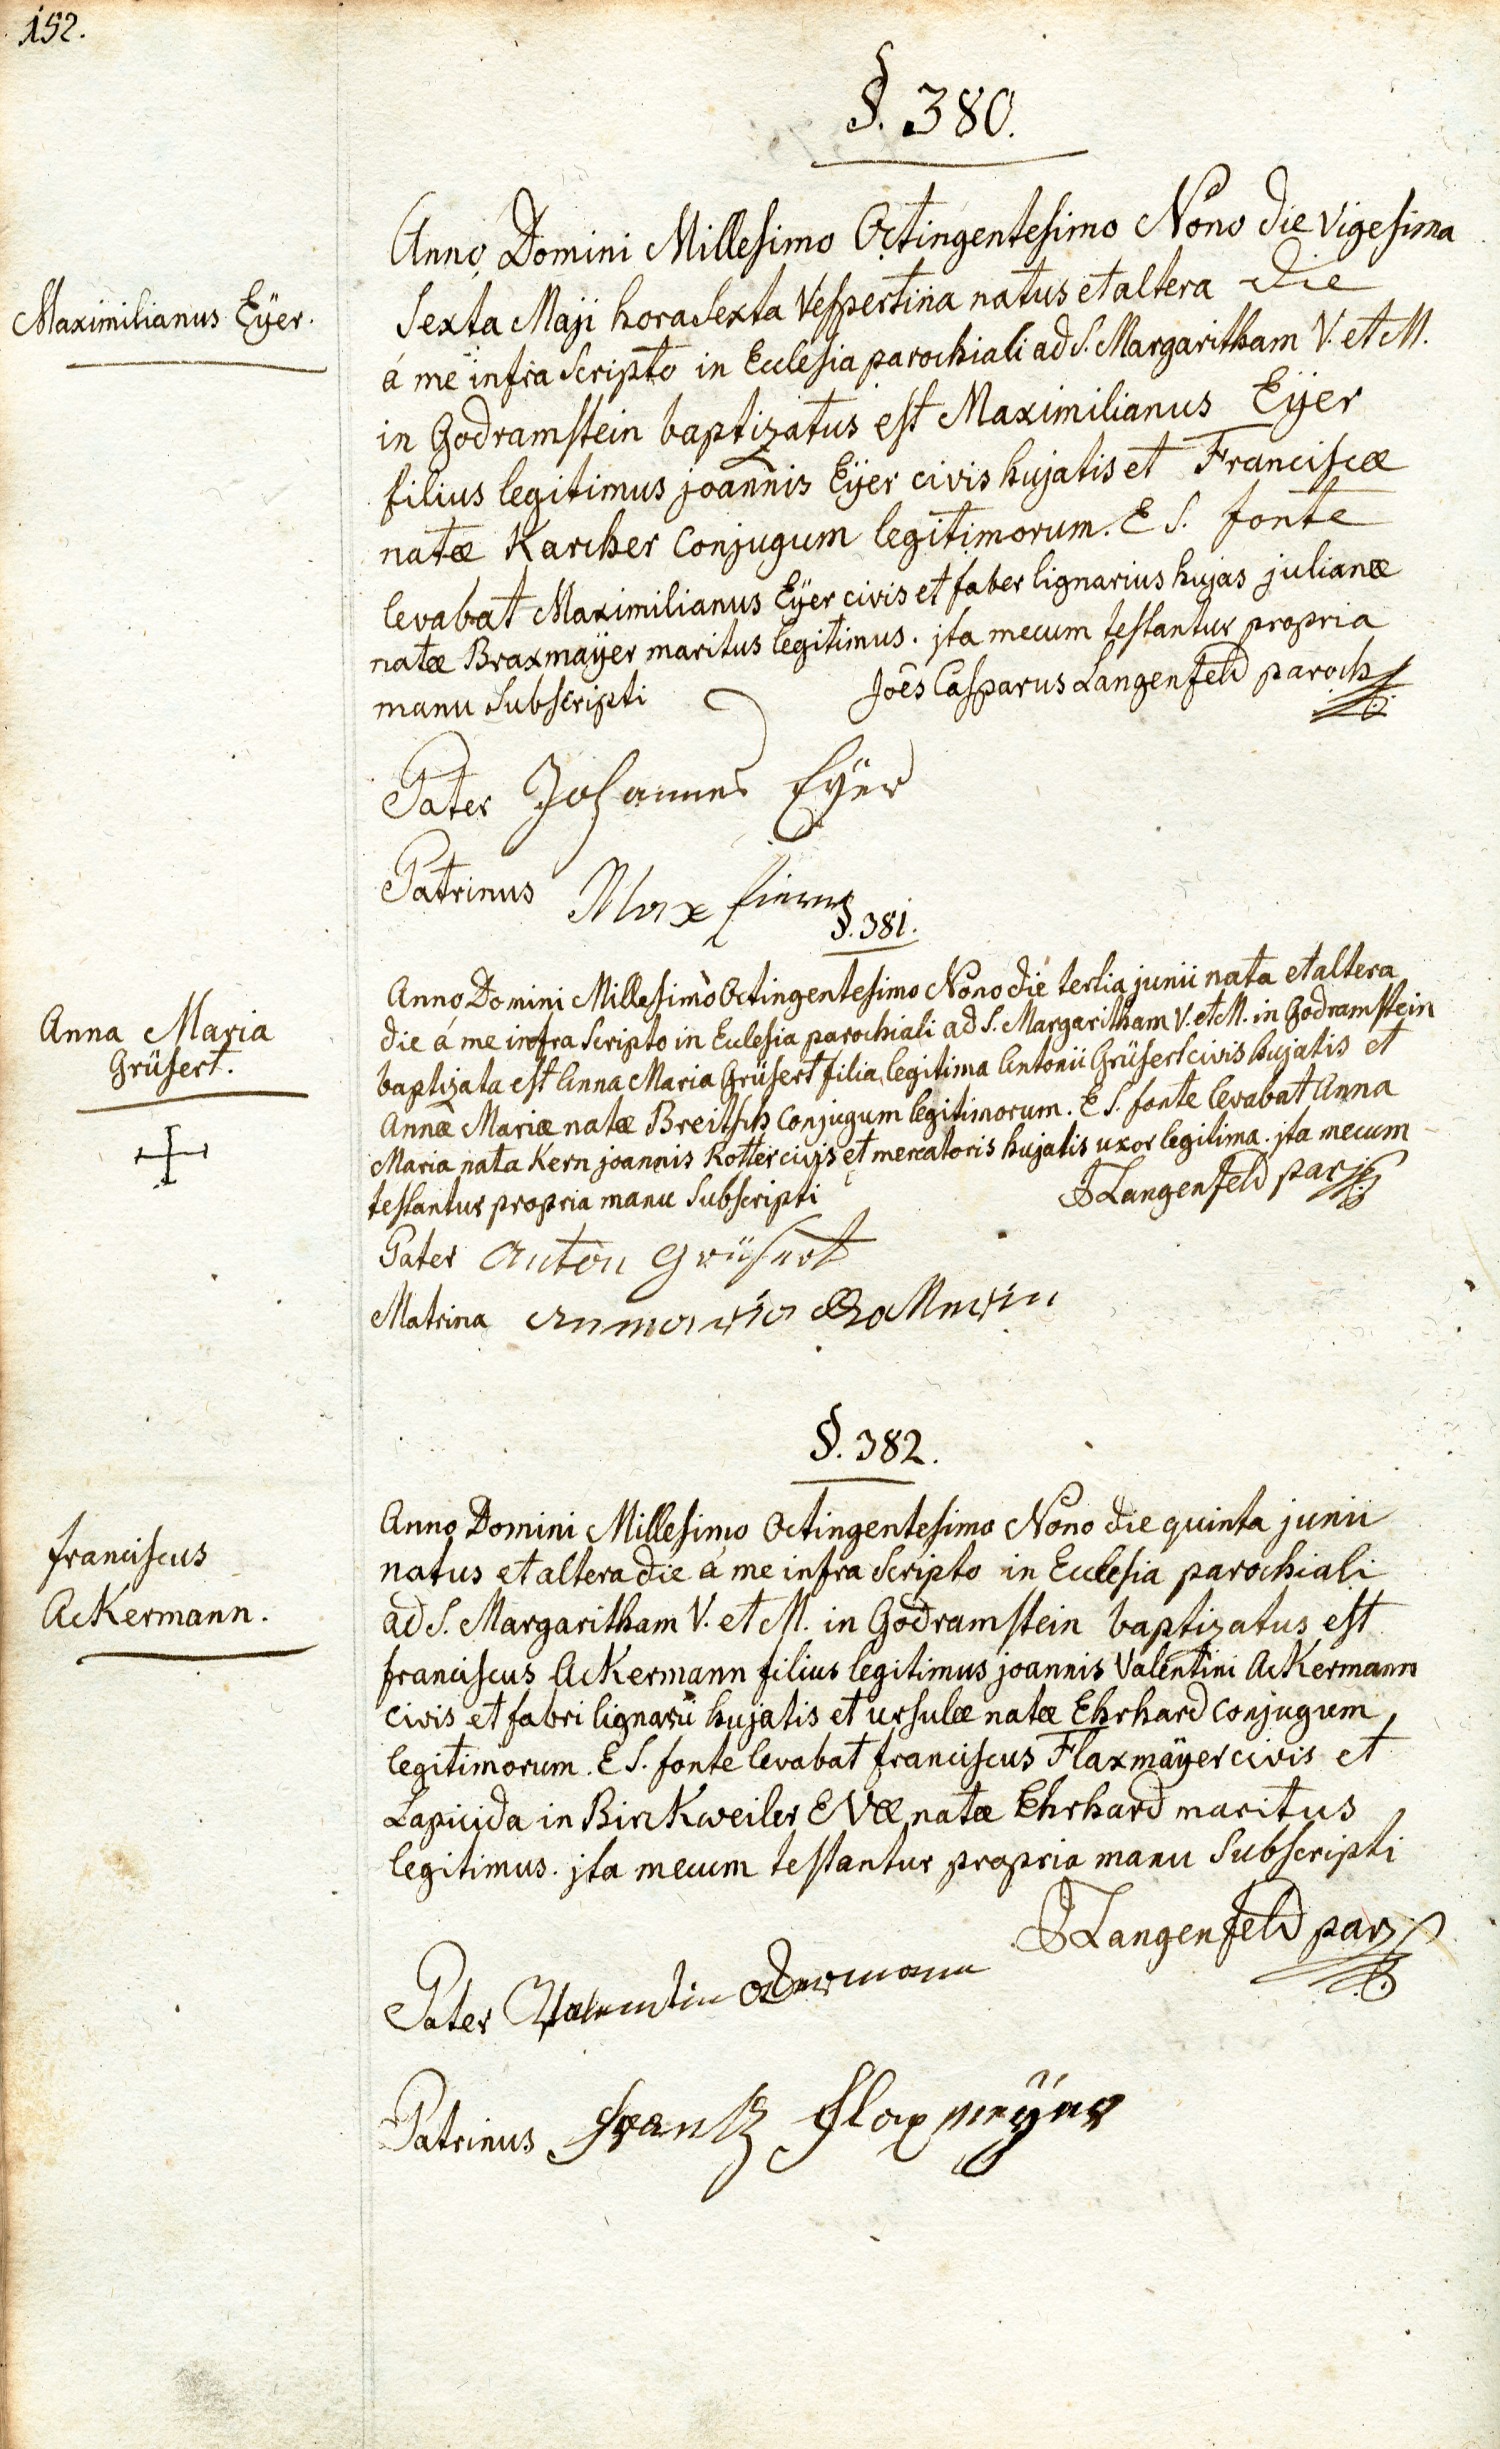 152.
§. 380.
Maximilianus Eÿer.
Anno Domini Millesimo Octingentesimo Nono die vigesima
sexta Maji hora sexta Vespertina natus et altera die
á me infra scripto in Ecclesia parochiali ad S. Margaritham V. et M.
in Godramstein baptizatus est Maximilianus Eÿer
filius legitimus joannis Eÿer civis hujatis et Franciscæ
natæ Karcher Conjugum legitimorum. E S. fonte
levabat Maximilianus Eÿer civis et faber lignarius hujas julianæ
natæ Braxmaÿer maritus legitimus. jta mecum testantur propria
manu subscripti Joēs Casparus Langenfeld paroch
Pater Johannes Eÿer
Patrinus Max
§. 381.
Anna Maria
Grüsert.
Anno Domini Millesimo Octingentesimo Nono die tertia junii nata et altera
die á me infra scripto in Ecclesia parochiali ad S. Margaritham V. et M. in Godramstein
baptizata est Anna Maria Grüsert filia legitima Antonii Grüsert civis hujatis et
Annæ Mariæ natæ Breitsch Conjugum legitimorum. E S. fonte levabat Anna
Maria nata Kern joannis Kotter civis et mercatoris hujatis uxor legitima. jta mecum
testantur propria manu subscripti JLangenfeld par
Pater Anton Grüsert
Matrina
§. 382.
franciscus
Ackermann.
Anno Domini Millesimo Octingentesimo Nono die quinta junii
natus et altera die á me infra scripto in Ecclesia parochiali
ad S. Margaritham V. et M. in Godramstein baptizatus est
franciscus Ackermann filius legitimus joannis Valentini Ackermann
civis et fabri lignarii hujatis et ursulæ natæ Ehrhard Conjugum
legitimorum. E S. fonte levabat franciscus Flaxmaÿer civis et
Lapicida in Birckweiler Evæ natæ Ehrhard maritus
legitimus. jta mecum testantur propria manu subscripti
JLangenfeld par
Pater Valentin Ackermann
Patrinus Frantz Flaxmeÿer